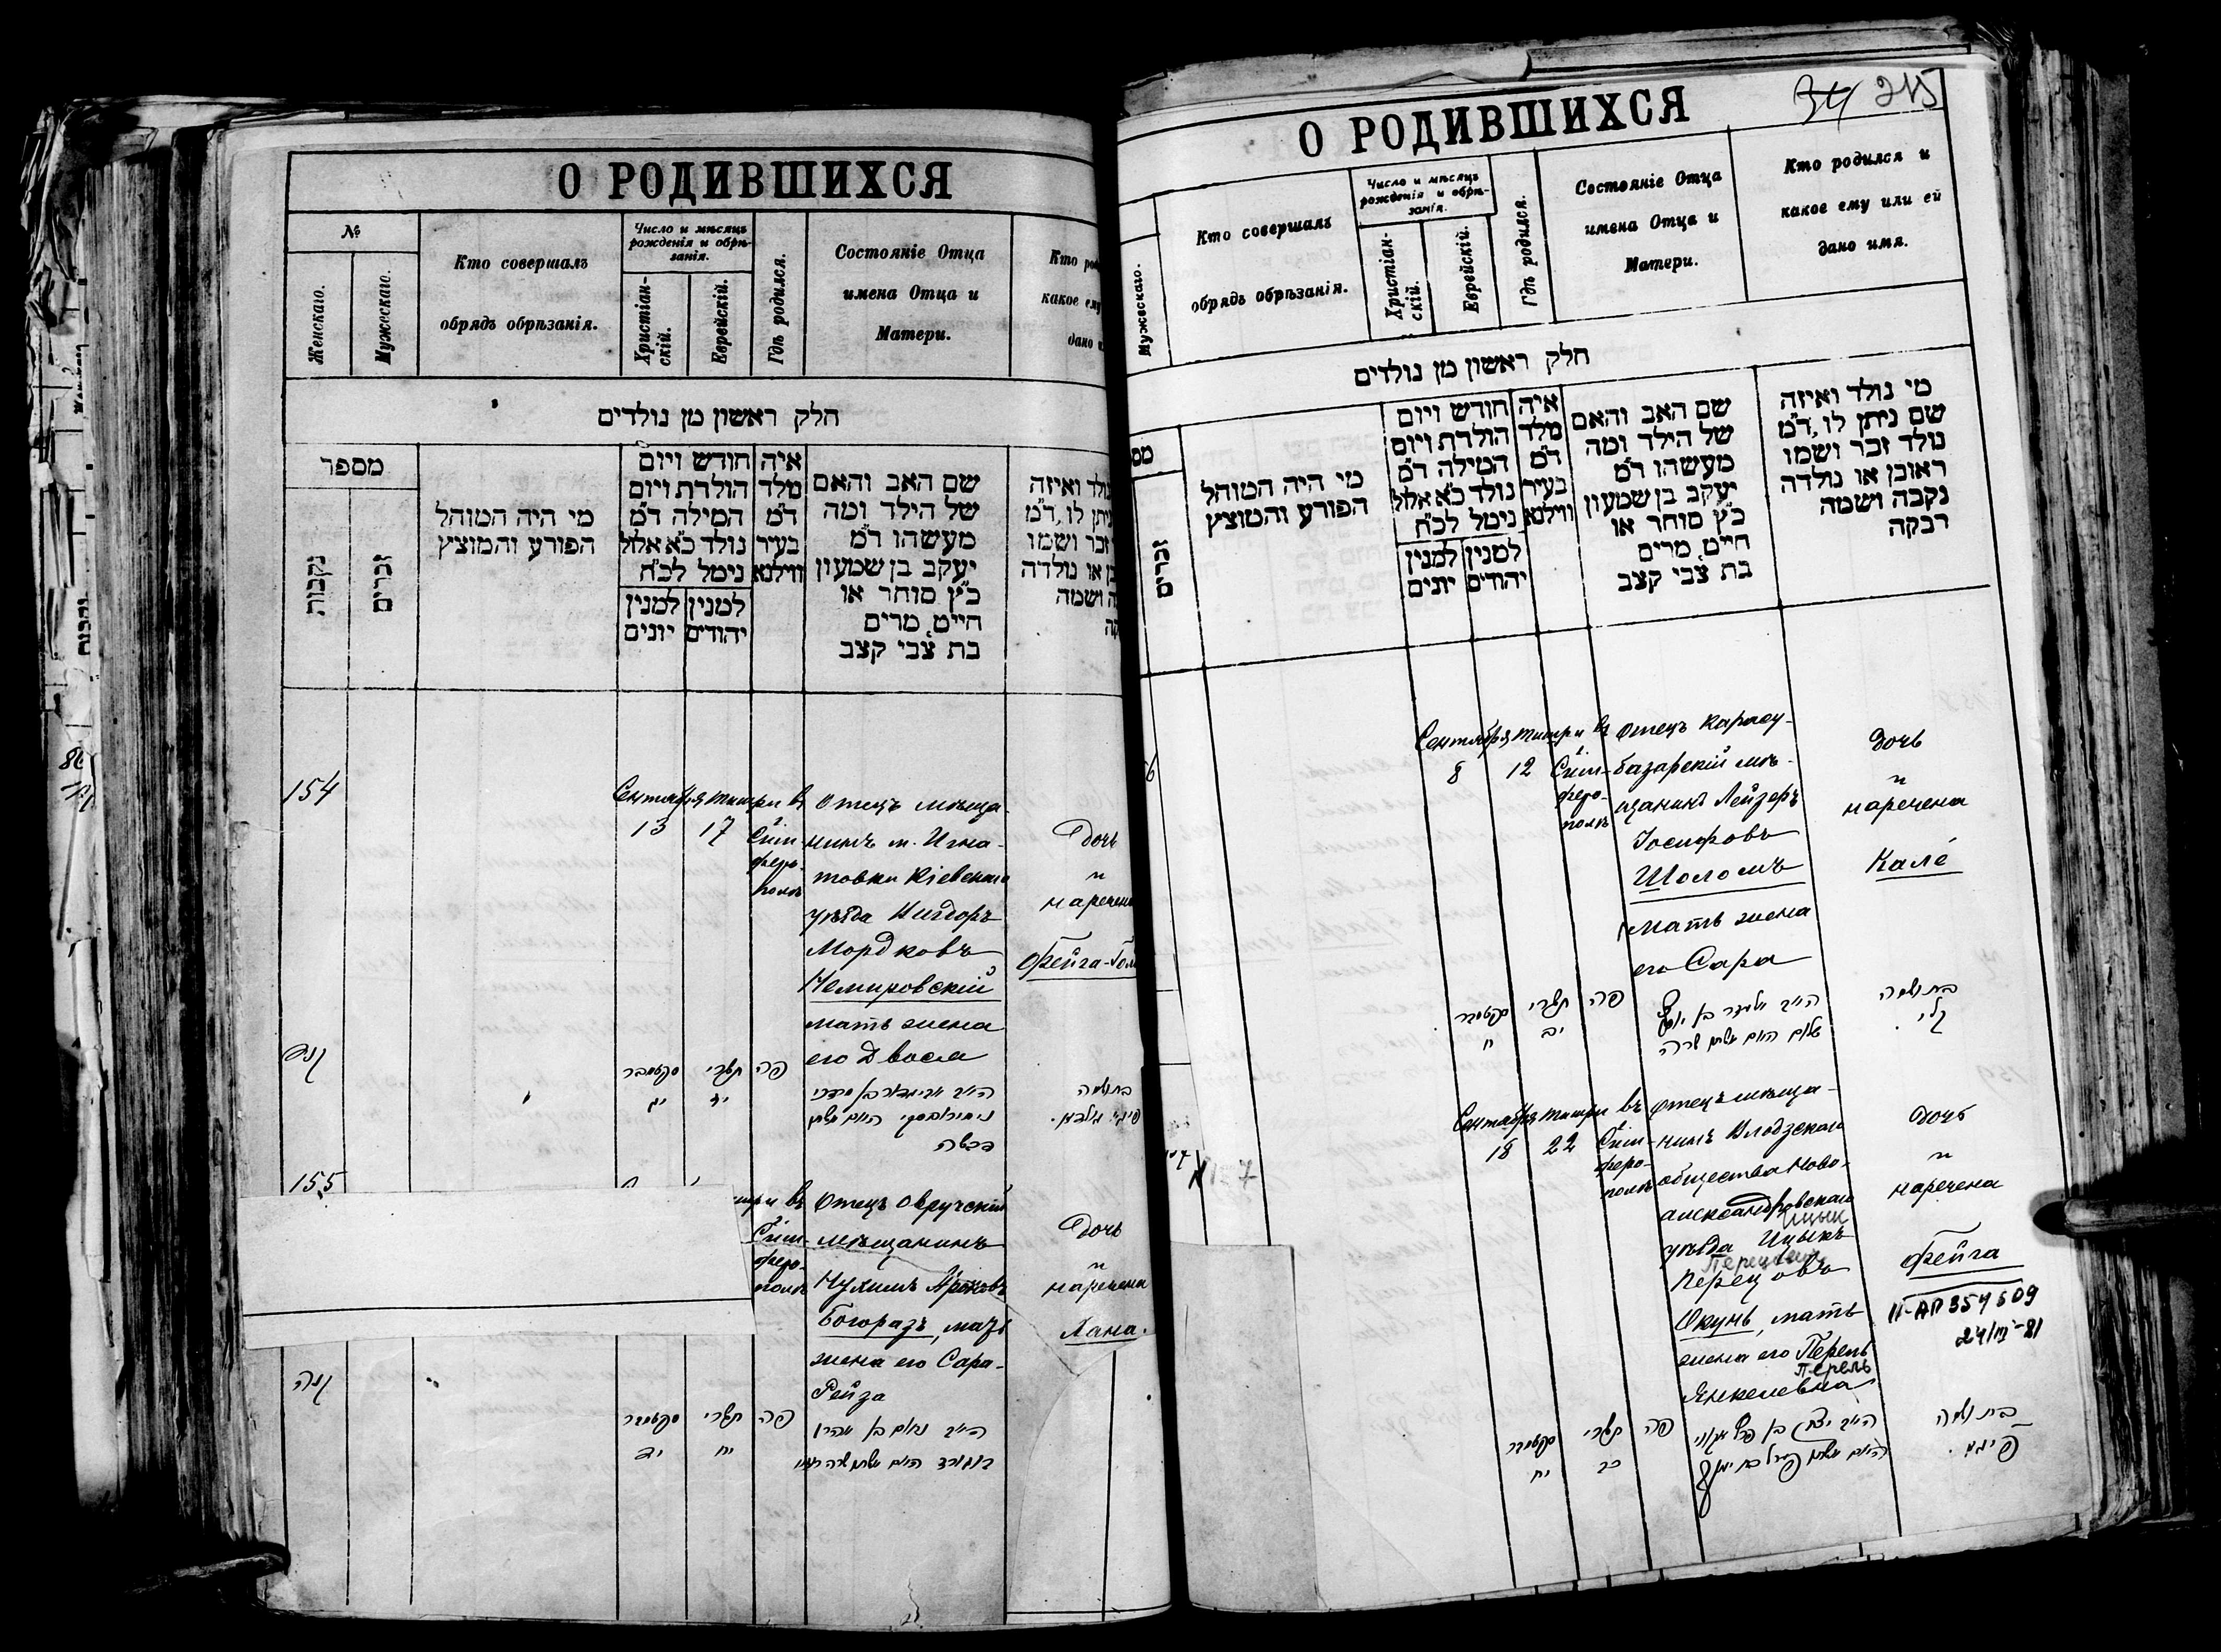 О РОДИВШИХСЯ
№
Женскаго.
Мужескаго.
Кто совершалъ
обрядъ обрѣзанія.
Число и мѣсяцъ
рожденія и обрѣ-
занія.
Христіан-
скій.
Еврейскій.
Гдѣ родился.
Состояніе Отца
имена Отца и
Матери.
Кто
какое ему
дано
חלק ראשון מן נולדים
מספר
נקבות
זכרים
מי היה המוהל
הפורע והמוצץ
חודש ויום
הולדת ויום
המילה ד״מ
נולד כ״א אלול
נימל לכ״ח
למנין למנין
יהודים יונים
איה
מלד
ד״מ
בעיר
ווילנא
שם האב והאם
של הילד ומה
מעשהו ד״מ
יעקב בן שמעון
כ״ץ סוחר או
חייט, מרים
בת צבי קצב
ואיזה
לו, ד״מ
ושמו
או נולדה
ושמה
154
Сентября Тишри въ
13 17 Сим-
феро-
полѣ
Отецъ мѣща-
нинъ м. Игна-
товки Кіевскаго
уѣзда Нигдоръ
Мордковъ
Немировскій
мать жена
его Двося
Дочь
и
наречена
Фейга-Гол
קנד
ספטמבר תשרי פה
יג יז
155
въ
Сим-
феро-
полѣ
Отецъ Овручскій
мѣщанинъ
Нухимъ Ароновъ
Богоразъ, мать
жена его Сара-
Рейза
Дочь
и
наречена
Хана.
קנה
ספטמבר תשרי פה
יד יח
נחום בן אהרן
О РОДИВШИХСЯ
34 215
Мужескаго.
Кто совершалъ
обрядъ обрѣзанія.
Число и мѣсяцъ
рожденія и обрѣ-
занія.
Христіан-
скій.
Еврейскій.
Гдѣ родился.
Состояніе Отца
имена Отца и
Матери.
Кто родился и
какое ему или ей
дано имя.
חלק ראשון מן נולדים
זכרים
מי היה המוהל
הפורע והמוצץ
חודש ויום
הולדת ויום
המילה ד״מ
נולד כ״א אלול
נימל לכ״ח
למנין למנין
יהודים יונים
איה
מלד
ד״מ
בעיר
ווילנא
שם האב והאם
של הילד ומה
מעשהו ד״מ
יעקב בן שמעון
כ״ץ סוחר או
חייט, מרים
בת צבי קצב
מי נולד ואיזה
שם ניתן לו, ד״מ
נולד זכר ושמו
ראובן או נולדה
נקבה ושמה
רבקה
6
Сентября Тишри въ
8 12 Сим-
феро-
полѣ
Отецъ Карасу-
базарскій мѣ-
щанинъ Лейзеръ
Іосифовъ
Шоломъ
мать жена
его Сара
Дочь
и
наречена
Кале
ספטמבר תשרי פה
ח יב
בת ושמה
קלי.
7
Сентября Тишри въ
18 22 Сим-
феро-
полѣ
Отецъ мѣща-
нинъ
общества Ново-
александровскаго
Ицык
уѣзда Ицыкъ
Перецович
Перецовъ
Окунь, мать
жена его Перель
Перель
Янкелевна
Дочь
и
наречена
Фейга
II-АП 354509
24/III-81
ספטמבר תשרי פה
יח כב
בת ושמה
פייגא.